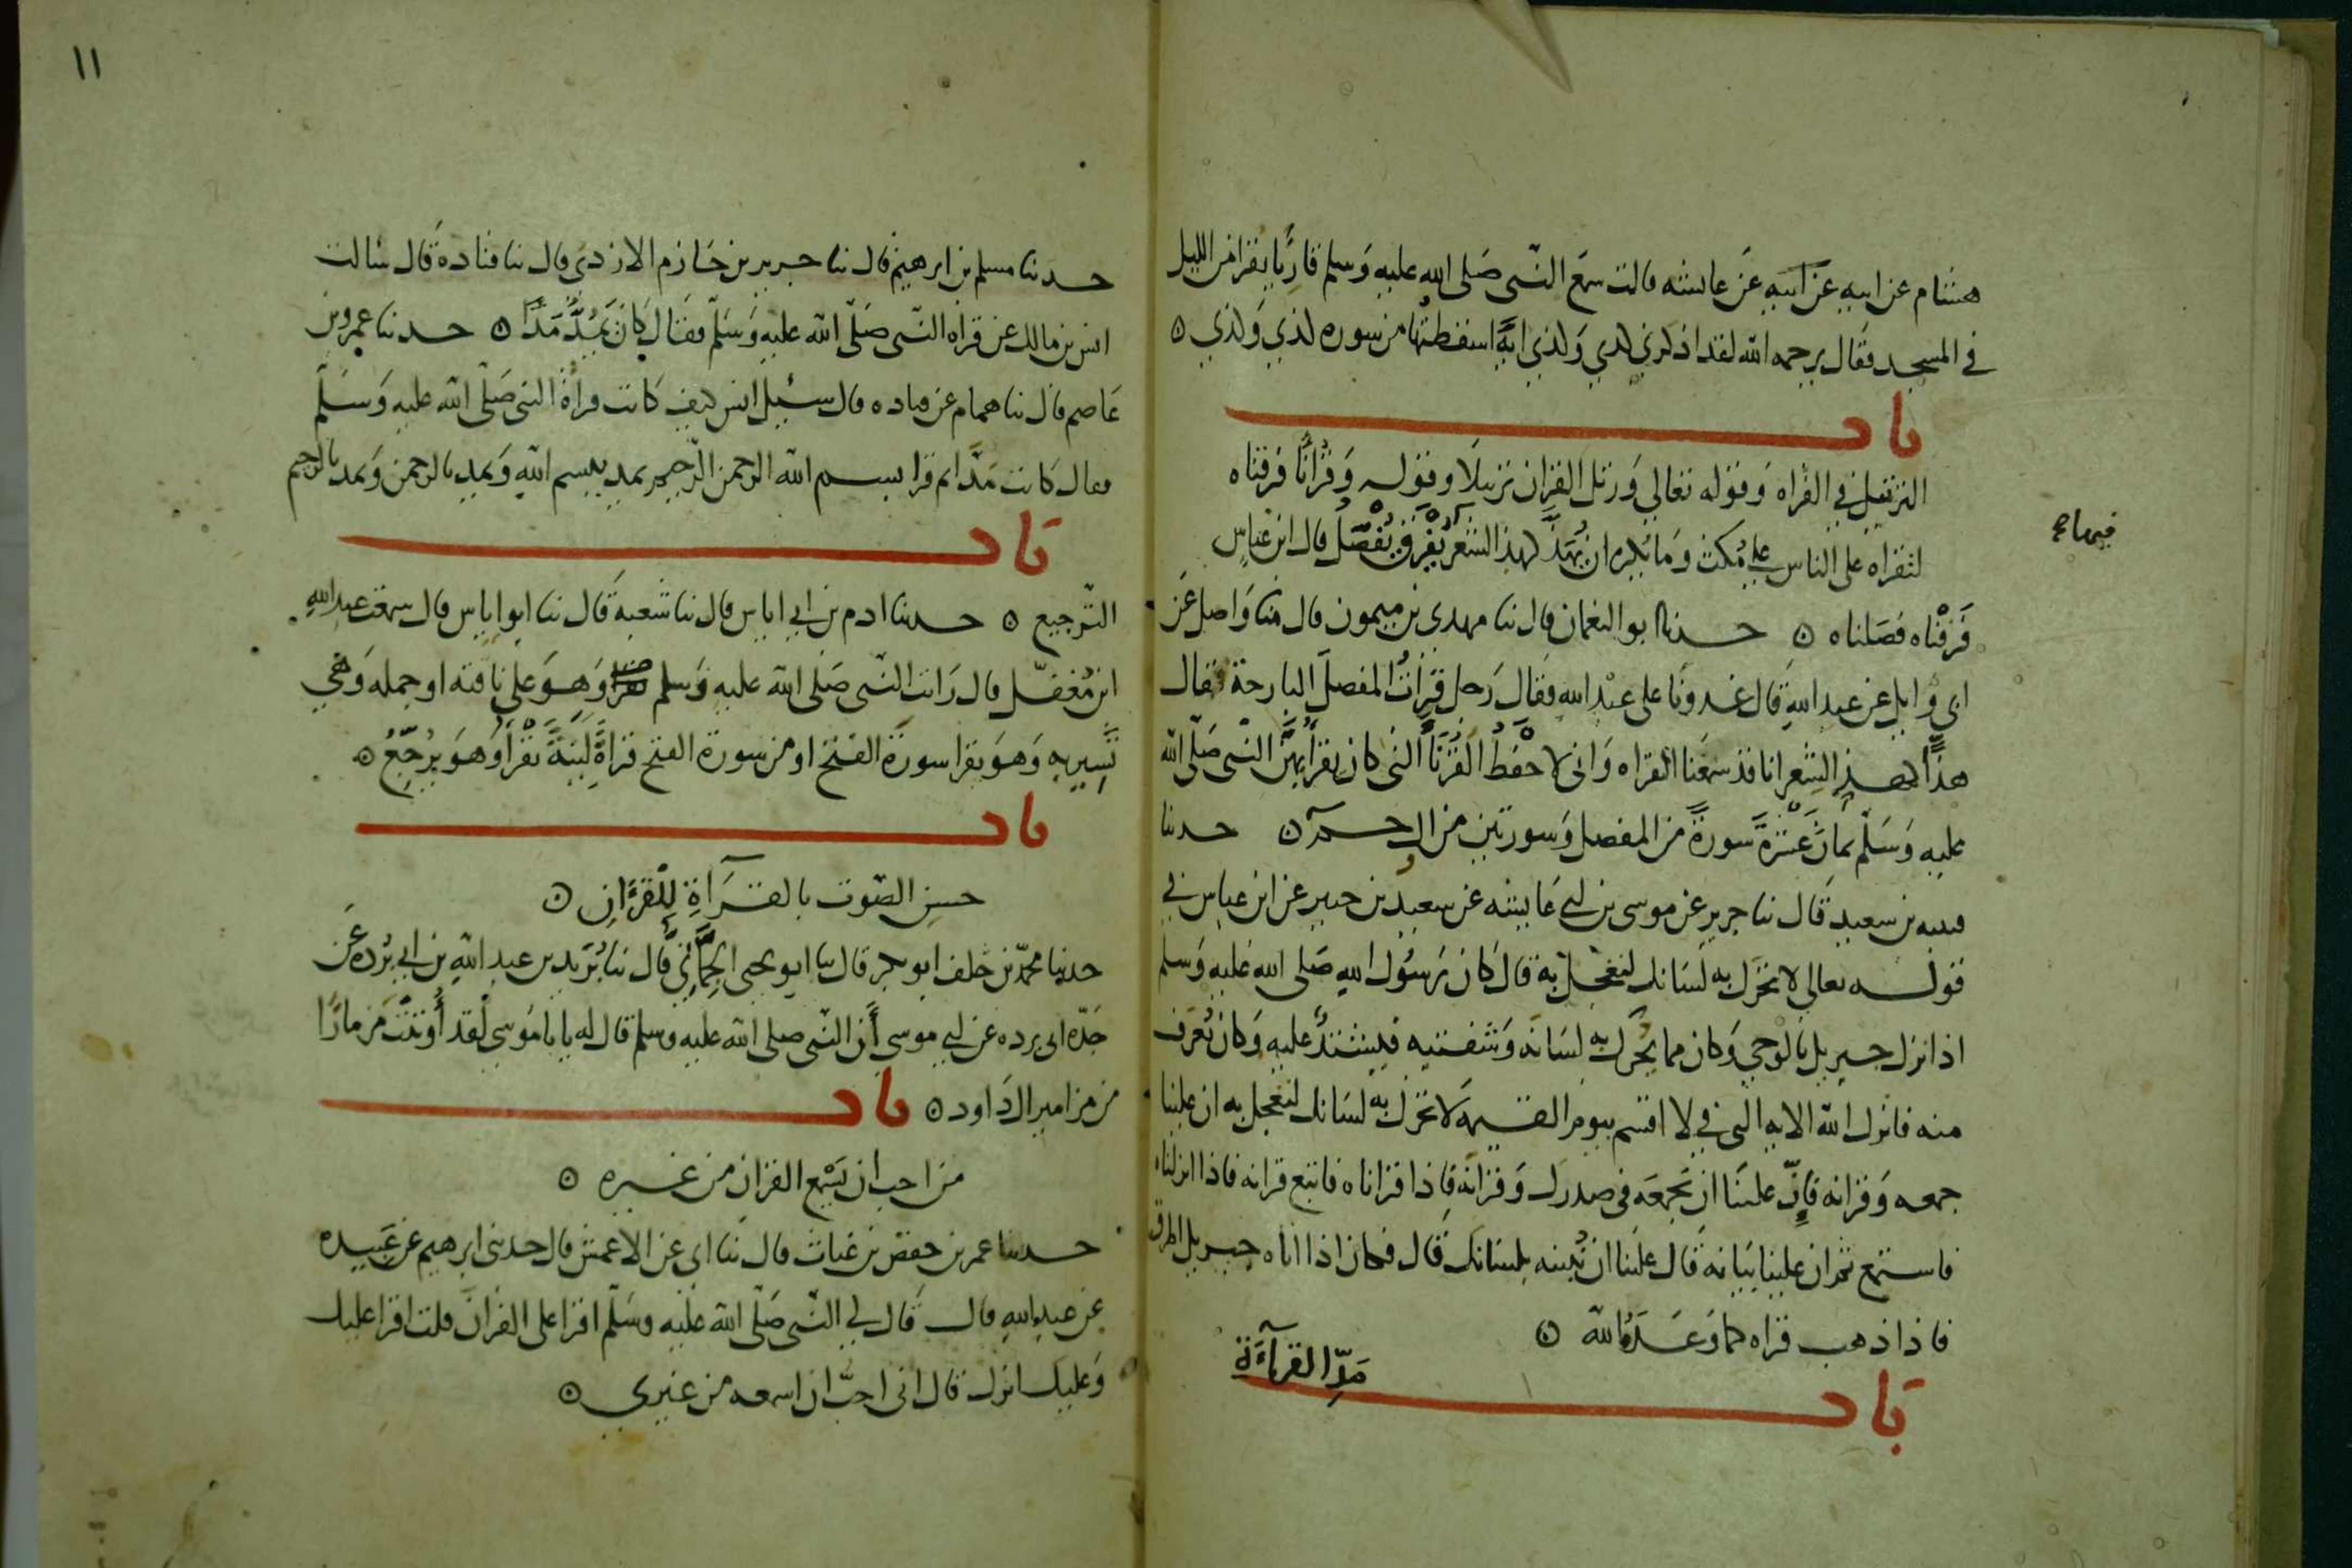 هشام عن ابيه عن ابيه عن عائشه قالت سمع النبي صلى الله عليه وسلم قاريا يقرا من الليل
في المسجد فقال يرحمه الله لقد اذكرني كذي وكذي اية اسقطتها من سوره كذي وكذي ٥
باب
الترتيل في القراه وقوله تعالي ورتل القران ترتيلا وقوله وقرانا فرقناه
لتقراه على الناس على مكث وما يكره ان يهذ كهذ الشعر يفرق يفصل قال ابن عباس
فيها
فرقناه فصلناه ٥ حدثنا ابو النعمان قال ثنا مهدي بن ميمون قال ثنا واصل عن
ابي وايل عن عبد الله قال غدونا على عبد الله فقال رجل قرات المفصل البارحة فقال
هذا كهذ الشعر انا قد سمعنا القراه واني لاحفظ القرنا التي كان يقرا بهن النبي صلى الله
عليه وسلم ثمان عشرة سورة من المفصل وسورتين من ال حم ٥ حدثنا
قتيبه بن سعيد قال ثنا جرير عن موسى بن ابي عايشه عن سعيد بن جبير عن ابن عباس في
قوله تعالي لا تحرك به لسانك لتعجل به قال كان رسول الله صلى الله عليه وسلم
اذا نزل جبريل بالوحي وكان مما يحرك به لسانه وشفتيه فيشتد عليه وكان يعرف
منه فانزل الله الايه التي في لا اقسم بيوم القيمة لا تحرك به لسانك لتعجل به ان علينا
جمعه وقرانه فان علينا ان نجمعه في صدرك وقرانه فاذا قراناه فاتبع قرانه فاذا انزلناه
فاستمع ثم ان علينا بيانه قال علينا ان نبينه بلسانك قال فكان اذا اتاه جبريل اطرق
فاذا ذهب قراه كما وعده الله ٥
باب مد القرآءة
١١
حدثنا مسلم بن ابرهيم قال ثنا جرير بن حازم الازدي قال ثنا قتادة قال سالت
انس بن مالك عن قراه النبي صلى الله عليه وسلم فقال كان يمد مدا ٥ حدثنا عمرو بن
عاصم قال ثنا همام عن قتاده قال سئيل انس كيف كانت قراة النبي صلى الله عليه وسلم
فقال كانت مدا ثم قرا بسم الله الرحمن الرحيم يمد ببسم الله ويمد بالرحمن ويمد بالرحيم
باب
الترجيع ٥ حدثنا ادم بن ابي اياس قال ثنا شعبة قال ثنا ابو اياس قال سمعت عبد الله
ابن مغفل قال رايت النبي صلى الله عليه وسلم يقرا وهو على ناقته او جمله وهي
تسير به وهو يقرا سورة الفتح او من سورة الفتح قراة لينة يقرا وهو يرجع ٥
باب
حسن الصوت بالقرآة للقرءان ٥
حدثنا محمد بن خلف ابو بكر قال ثنا ابو يحيى الحماني قال ثنا بريد بن عبد الله بن ابي برده عن
جده ابي برده عن ابي موسى أن النبي صلى الله عليه وسلم قال له يا با موسى لقد أوتيت مزمارا
من مزامير ال داود ٥ باب
من احب ان يسمع القران من غيره ٥
حدثنا عمر بن حفص بن غياث قال ثنا ابي عن الاعمش قال حدثني ابرهيم عن عبيده
عن عبد الله قال قال لي النبي صلى الله عليه وسلم اقرا على القران قلت اقرا عليك
وعليك انزل قال اني احب ان اسمعه من غيري ٥